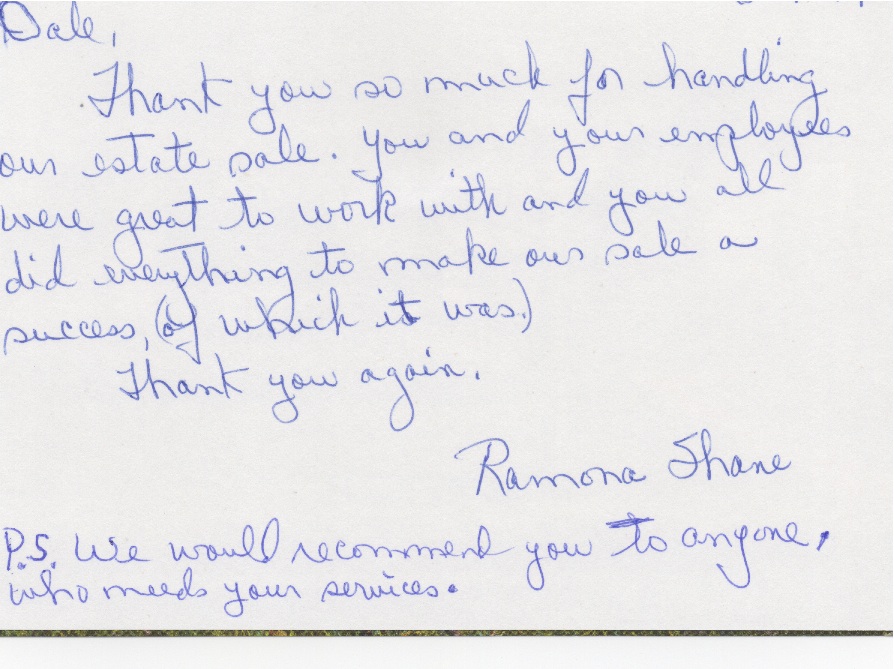 Dale,
Thank you so much for handling
our estate sale. You and your employees
were great to work with and you all
did everything to make our sale a
success, (of which it was.)
Thank you again.
Ramona Shane
P.S. We would recommend you to anyone,
who needs your services.